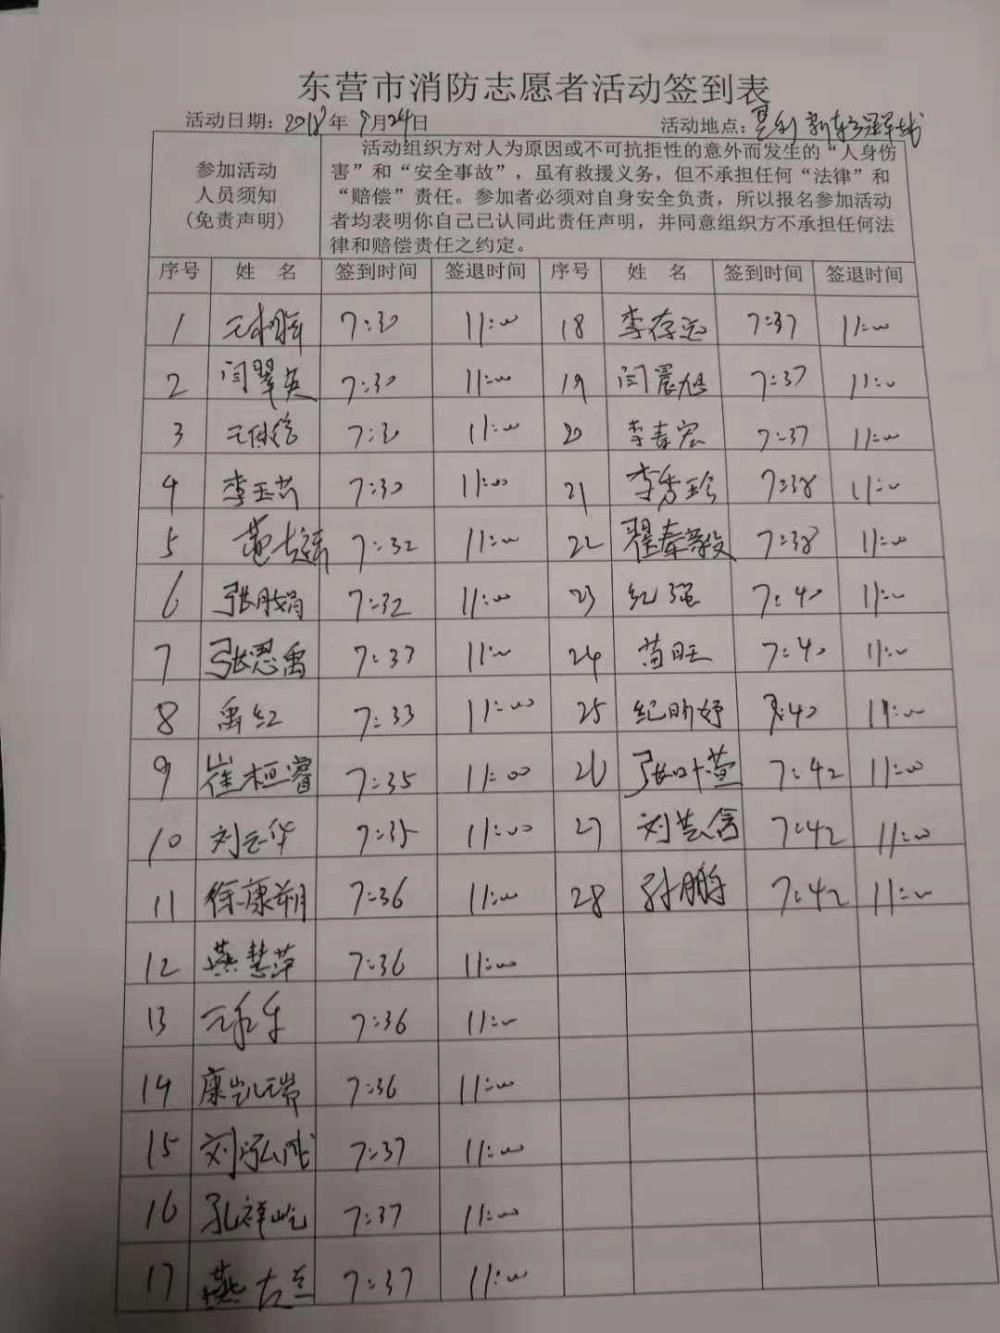 东营市消防志愿者活动签到表
活动日期：2018年9月24日 活动地点：垦利
参加活动
人员须知
(免责声明)
活动组织方对人为原因或不可抗拒性的意外而发生的“人身伤
害”和“安全事故”，虽有救援义务，但不承担任何“法律”和
“赔偿”责任。参加者必须对自身安全负责，所以报名参加活动
者均表明你自己已认同此责任声明，并同意组织方不承担任何法
律和赔偿责任之约定。
序号 姓 名 签到时间 签退时间 序号 姓 名 签到时间 签退时间
1 7:30 11:00 18 李存远 7:37 11:00
2 闫翠英 7:30 11:00 19 闫震旭 7:37 11:00
3 7:30 11:00 20 李春宏 7:37 11:00
4 李玉芳 7:30 11:00 21 李秀珍 7:38 11:00
5 7:32 11:00 22 翟秦毅 7:38 11:00
6 张胜娟 7:32 11:00 23 纪强 7:40 11:00
7 张思禹 7:33 11:00 24 苗旺 7:40 11:00
8 禹红 7:33 11:00 25 纪昕妤 7:40 11:00
9 崔桓睿 7:35 11:00 26 张叶萱 7:42 11:00
10 刘云华 7:35 11:00 27 7:42 11:00
11 徐康朔 7:36 11:00 28 孙鹏 7:42 11:00
12 燕慧萍 7:36 11:00
13 7:36 11:00
14 康凯瑞 7:36 11:00
15 刘泓成 7:37 11:00
16 孔祥屹 7:37 11:00
17 燕古兰 7:37 11:00